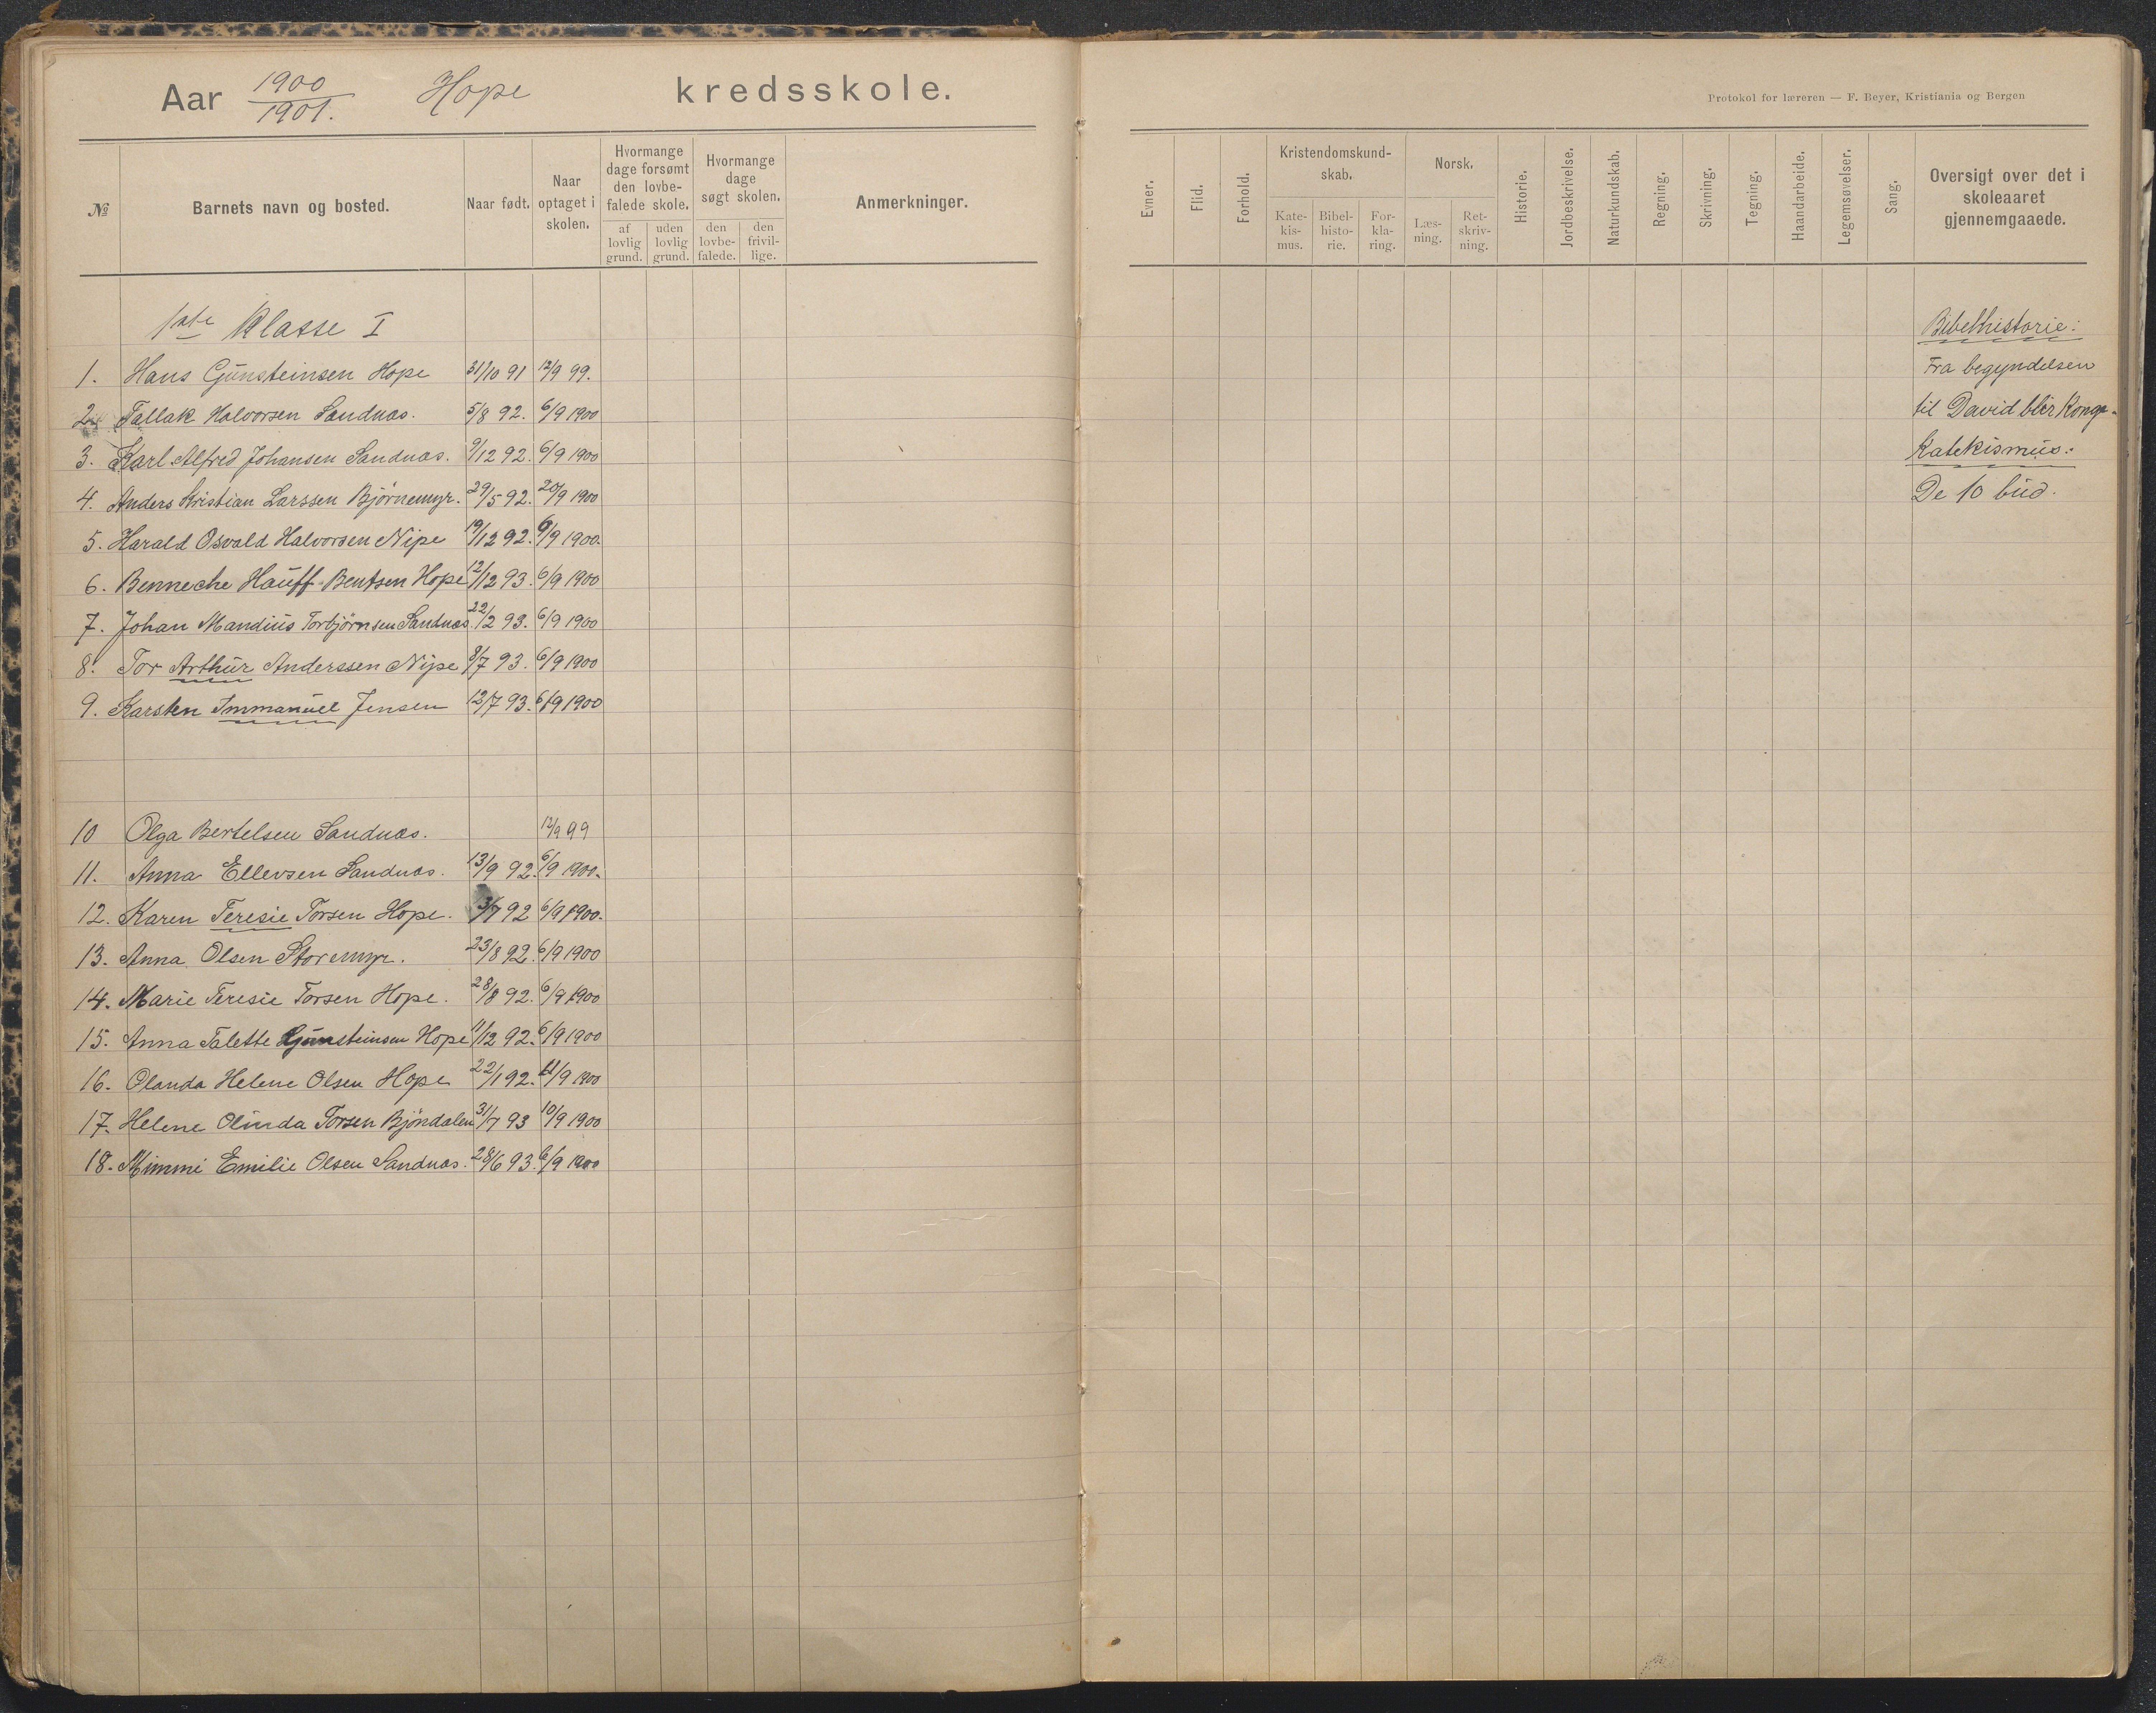 Aar 1900/1901. Hope kredsskole.
Protokol for læreren — F. Beyer, Kristiania og Bergen
№ Barnets navn og bosted. Naar født. Naar optaget i skolen. Hvormange dage forsømt den lovbefalede skole. af lovlig grund. uden lovlig grund. Hvormange dage søgt skolen. den lovbefalede. den frivillige. Anmerkninger.
Evner. Flid. Forhold. Kristendomskundskab. Katekismus. Bibelhistorie. Forklaring. Norsk. Læsning. Retskrivning. Historie. Jordbeskrivelse. Naturkundskab. Regning. Skrivning. Tegning. Haandarbeide. Legemsøvelser. Sang. Oversigt over det i skoleaaret gjennemgaaede.
1ste Klasse I
1. Hans Gunsteinsen Hope 31/10 91 12/9 99.
2. Tallak Halvorsen Sandnæs. 5/8 92. 6/9 1900
3. Karl Alfred Johansen Sandnæs. 9/12 92. 6/9 1900
4. Anders Kristian Larssen Bjørnemyr. 29/5 92. 20/9 1900
5. Harald Osvald Halvorsen Nipe 19/12 92. 6/9 1900.
6. Benneche Hauff Bentsen Hope 12/12 93. 6/9 1900
7. Johan Mandius Torbjørnsen Sandnæs. 22/2 93. 6/9 1900
8. Tor Arthur Anderssen Nipe 8/7 93. 6/9 1900
9. Karsten Immanuel Jensen 12/7 93. 6/9 1900
10 Olga Bertelsen Sandnæs. 12/9 99
11. Anna Ellevsen Sandnæs. 13/9 92. 6/9 1900.
12. Karen Teresie Torsen Hope. 3/7 92 6/9 1900.
13. Anna Olsen Storemyr. 23/8 92. 6/9 1900
14. Marie Teresie Torsen Hope. 28/8 92. 6/9 1900
15. Anna Talette Gunsteinsen Hope 11/12 92. 6/9 1900
16. Olanda Helene Olsen Hope 22/1 92. 11/9 1900
17. Helene Olinda Torsen Bjöndalen 31/7 93 10/9 1900
18. Mimmi Emilie Olsen Sandnæs. 28/6 93. 6/9 1900
Bibelhistorie:
Fra begyndelsen
til David blir Konge.
Katekismus:
De 10 bud.